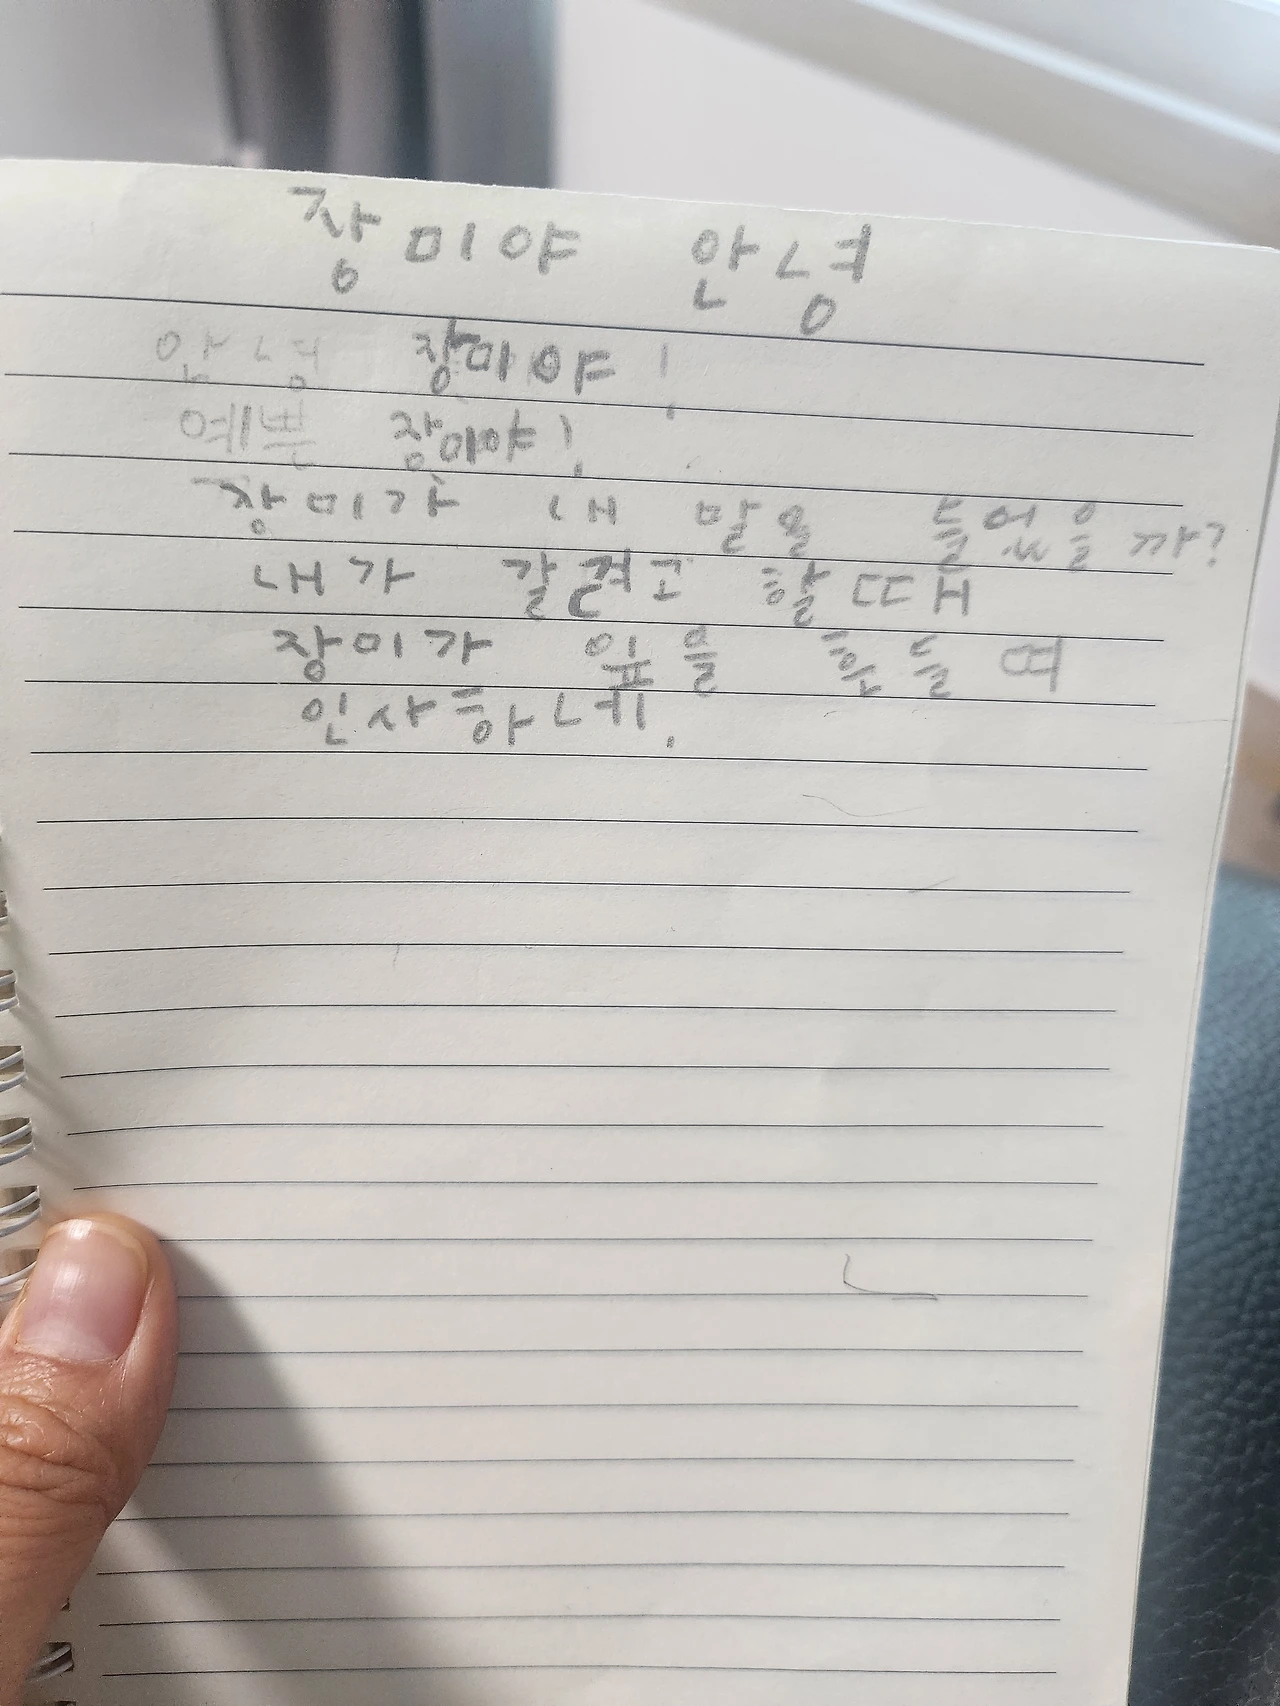 장미야 안녕
안녕 장미야!
예쁜 장미야!
장미가 내 말을 들었을까?
내가 갈려고 할때
장미가 잎을 흔들며
인사하네.